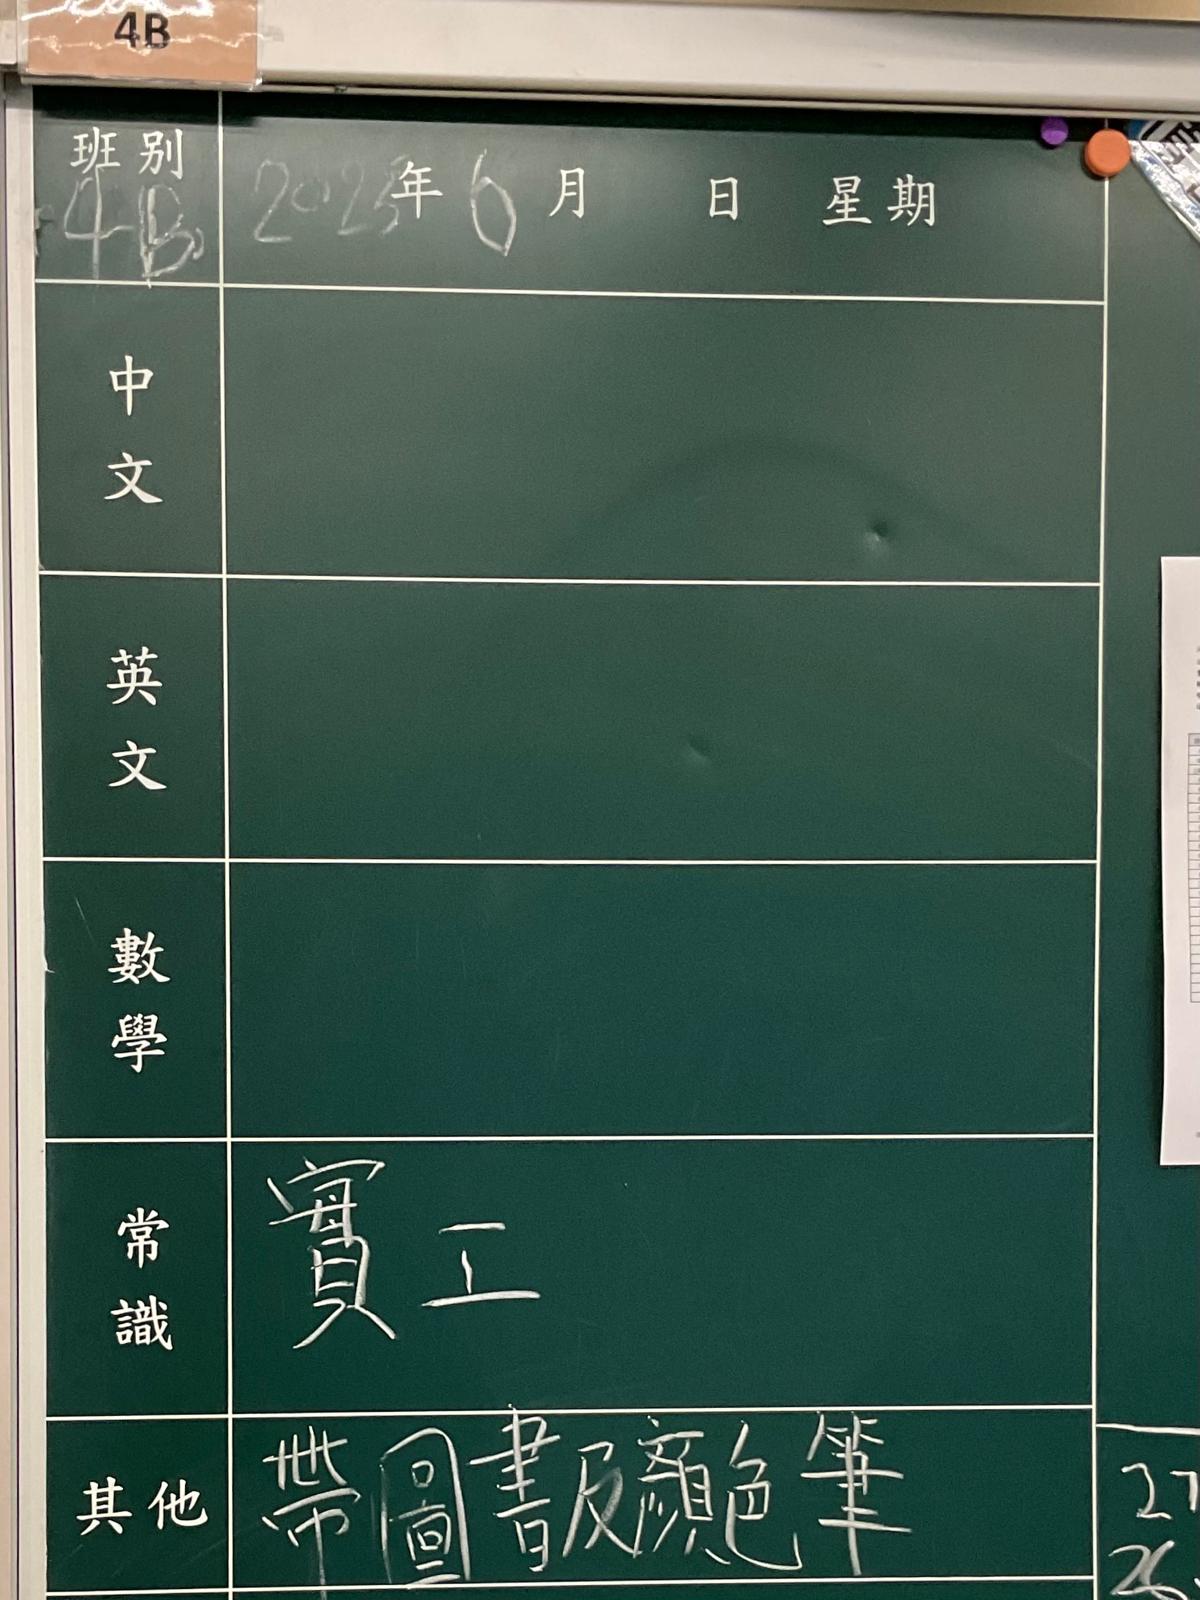 4B
班別
4B
2023年6月 日 星期
中文
英文
數學
常識
實工
其他
帶圖書及顏色筆
27